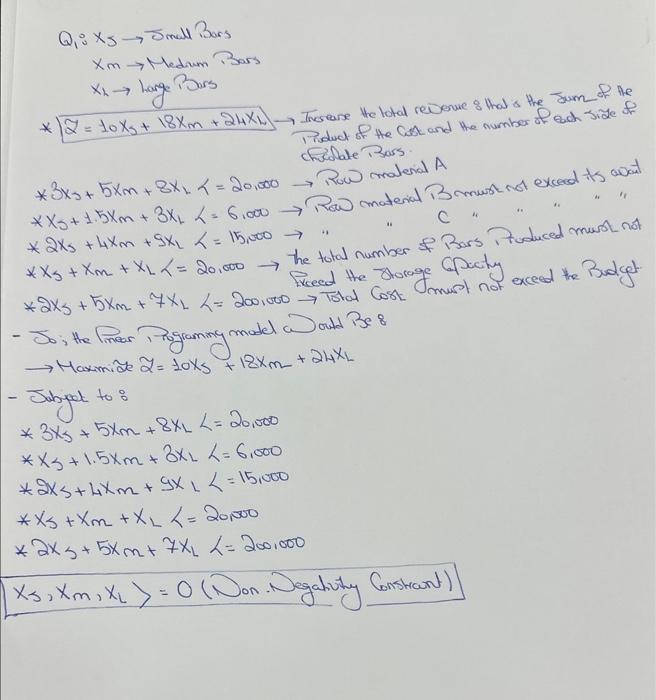 Q1: XS → Small Bars
Xm → Medium Bars
XL → Large Bars
* Z = 10XS + 18Xm + 24XL → Increase the total revenue & that is the Sum of the
Product of the Cost and the number of each size of
chocolate Bars.
* 3XS + 5Xm + 8XL <= 20,000 → Raw material A
* XS + 1.5Xm + 3XL <= 6,000 → Raw material B must not exceed its avail
* 2XS + 4Xm + 9XL <= 15,000 → " " C " " " "
* XS + Xm + XL <= 20,000 → the total number of Bars Produced must not
Exceed the Storage Capacity
* 2XS + 5Xm + 7XL <= 200,000 → Total Cost must not exceed the Budget
- So, the linear Programing model Would Be:
→ Maxmize Z = 10XS + 18Xm + 24XL
- Subject to:
* 3XS + 5Xm + 8XL <= 20,000
* XS + 1.5Xm + 3XL <= 6,000
* 2XS + 4Xm + 9XL <= 15,000
* XS + Xm + XL <= 20,000
* 2XS + 5Xm + 7XL <= 200,000
XS, Xm, XL >= 0 (Non-Negativity Constraint)